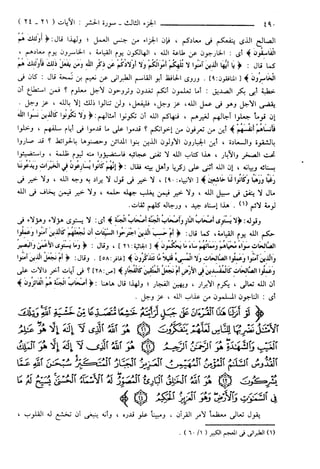 ٤٩٠ الجزء الثالث - سورة الحشر : الآيات ( ٢١ - ٢٤ )
الصالح الذي ينفعكم في معادكم ، فإن الجزاء من جنس العمل ؛ ولهذا قال : ﴿ أولئك هم
الفاسقون ﴾ أي : الخارجون عن طاعة الله ، الهالكون يوم القيامة ، الخاسرون يوم معادهم ،
كما قال : ﴿ يا أيها الذين آمنوا لا تلهكم أموالكم ولا أولادكم عن ذكر الله ومن يفعل ذلك فأولئك هم
الخاسرون ﴾ [ المنافقون : ٩ ] . وروى الحافظ أبو القاسم الطبراني عن نعيم بن نمحة قال : كان في
خطبة أبي بكر الصديق : أما تعلمون أنكم تغدون وتروحون لأجل معلوم ؟ فمن استطاع أن
يقضي الأجل وهو في عمل الله ، عز وجل ، فليفعل ، ولن تنالوا ذلك إلا بالله ، عز وجل .
إن قوماً جعلوا آجالهم لغيرهم ، فنهاكم الله أن تكونوا أمثالهم : ﴿ ولا تكونوا كالذين نسوا الله
فأنساهم أنفسهم ﴾ أين من تعرفون من إخوانكم ؟ قدموا على ما قدموا في أيام سلفهم ، وخلوا
بالشقوة والسعادة ، أين الجبارون الأولون الذين بنوا المدائن وحصنوها بالحوائط ؟ قد صاروا
تحت الصخر والآبار ، هذا كتاب الله لا تفنى عجائبه فاستضيئوا منه ليوم ظلمة ، واستضيئوا
بسنائه وبيانه ، إن الله أثنى على زكريا وأهل بيته فقال : ﴿ إنهم كانوا يسارعون في الخيرات ويدعوننا
رغباً ورهباً وكانوا لنا خاشعين ﴾ [ الأنبياء : ٩٠ ] ، لا خير في قول لا يراد به وجه الله ، ولا خير في
مال لا ينفق في سبيل الله ، ولا خير فيمن يغلب جهله حلمه ، ولا خير فيمن يخاف في الله
لومة لائم (١) . هذا إسناد جيد ، ورجاله كلهم ثقات .
وقوله : ﴿ لا يستوي أصحاب النار وأصحاب الجنة ﴾ أي : لا يستوي هؤلاء وهؤلاء في
حكم الله يوم القيامة ، كما قال : ﴿ أم حسب الذين اجترحوا السيئات أن نجعلهم كالذين آمنوا وعملوا
الصالحات سواء محياهم ومماتهم ساء ما يحكمون ﴾ [ الجاثية : ٢١ ] ، وقال : ﴿ وما يستوي الأعمى والبصير
والذين آمنوا وعملوا الصالحات ولا المسيء قليلاً ما تتذكرون ﴾ [ غافر : ٥٨ ] . وقال : ﴿ أم نجعل الذين آمنوا
وعملوا الصالحات كالمفسدين في الأرض أم نجعل المتقين كالفجار ﴾ [ ص : ٢٨ ] ؟ في آيات أخر دالات على
أن الله تعالى ، يكرم الأبرار ، ويهين الفجار ؛ ولهذا قال هاهنا : ﴿ أصحاب الجنة هم الفائزون ﴾
أي : الناجون المسلمون من عذاب الله ، عز وجل .
لو أنزلنا هذا القرآن على جبل لرأيته خاشعا متصدعا من خشية الله وتلك الأمثال
نضربها للناس لعلهم يتفكرون ۝ هو الله الذي لا إله إلا هو عالم
الغيب والشهادة هو الرحمن الرحيم ۝ هو الله الذي لا إله إلا هو الملك
القدوس السلام المؤمن المهيمن العزيز الجبار المتكبر سبحان الله عما
يشركون ۝ هو الله الخالق البارئ المصور له الأسماء الحسنى يسبح له
ما في السماوات والأرض وهو العزيز الحكيم ۝
يقول تعالى معظماً لأمر القرآن ، ومبيناً علو قدره ، وأنه ينبغي أن تخشع له القلوب ،
(١) الطبراني في المعجم الكبير ( ١ / ٦٠ ) .